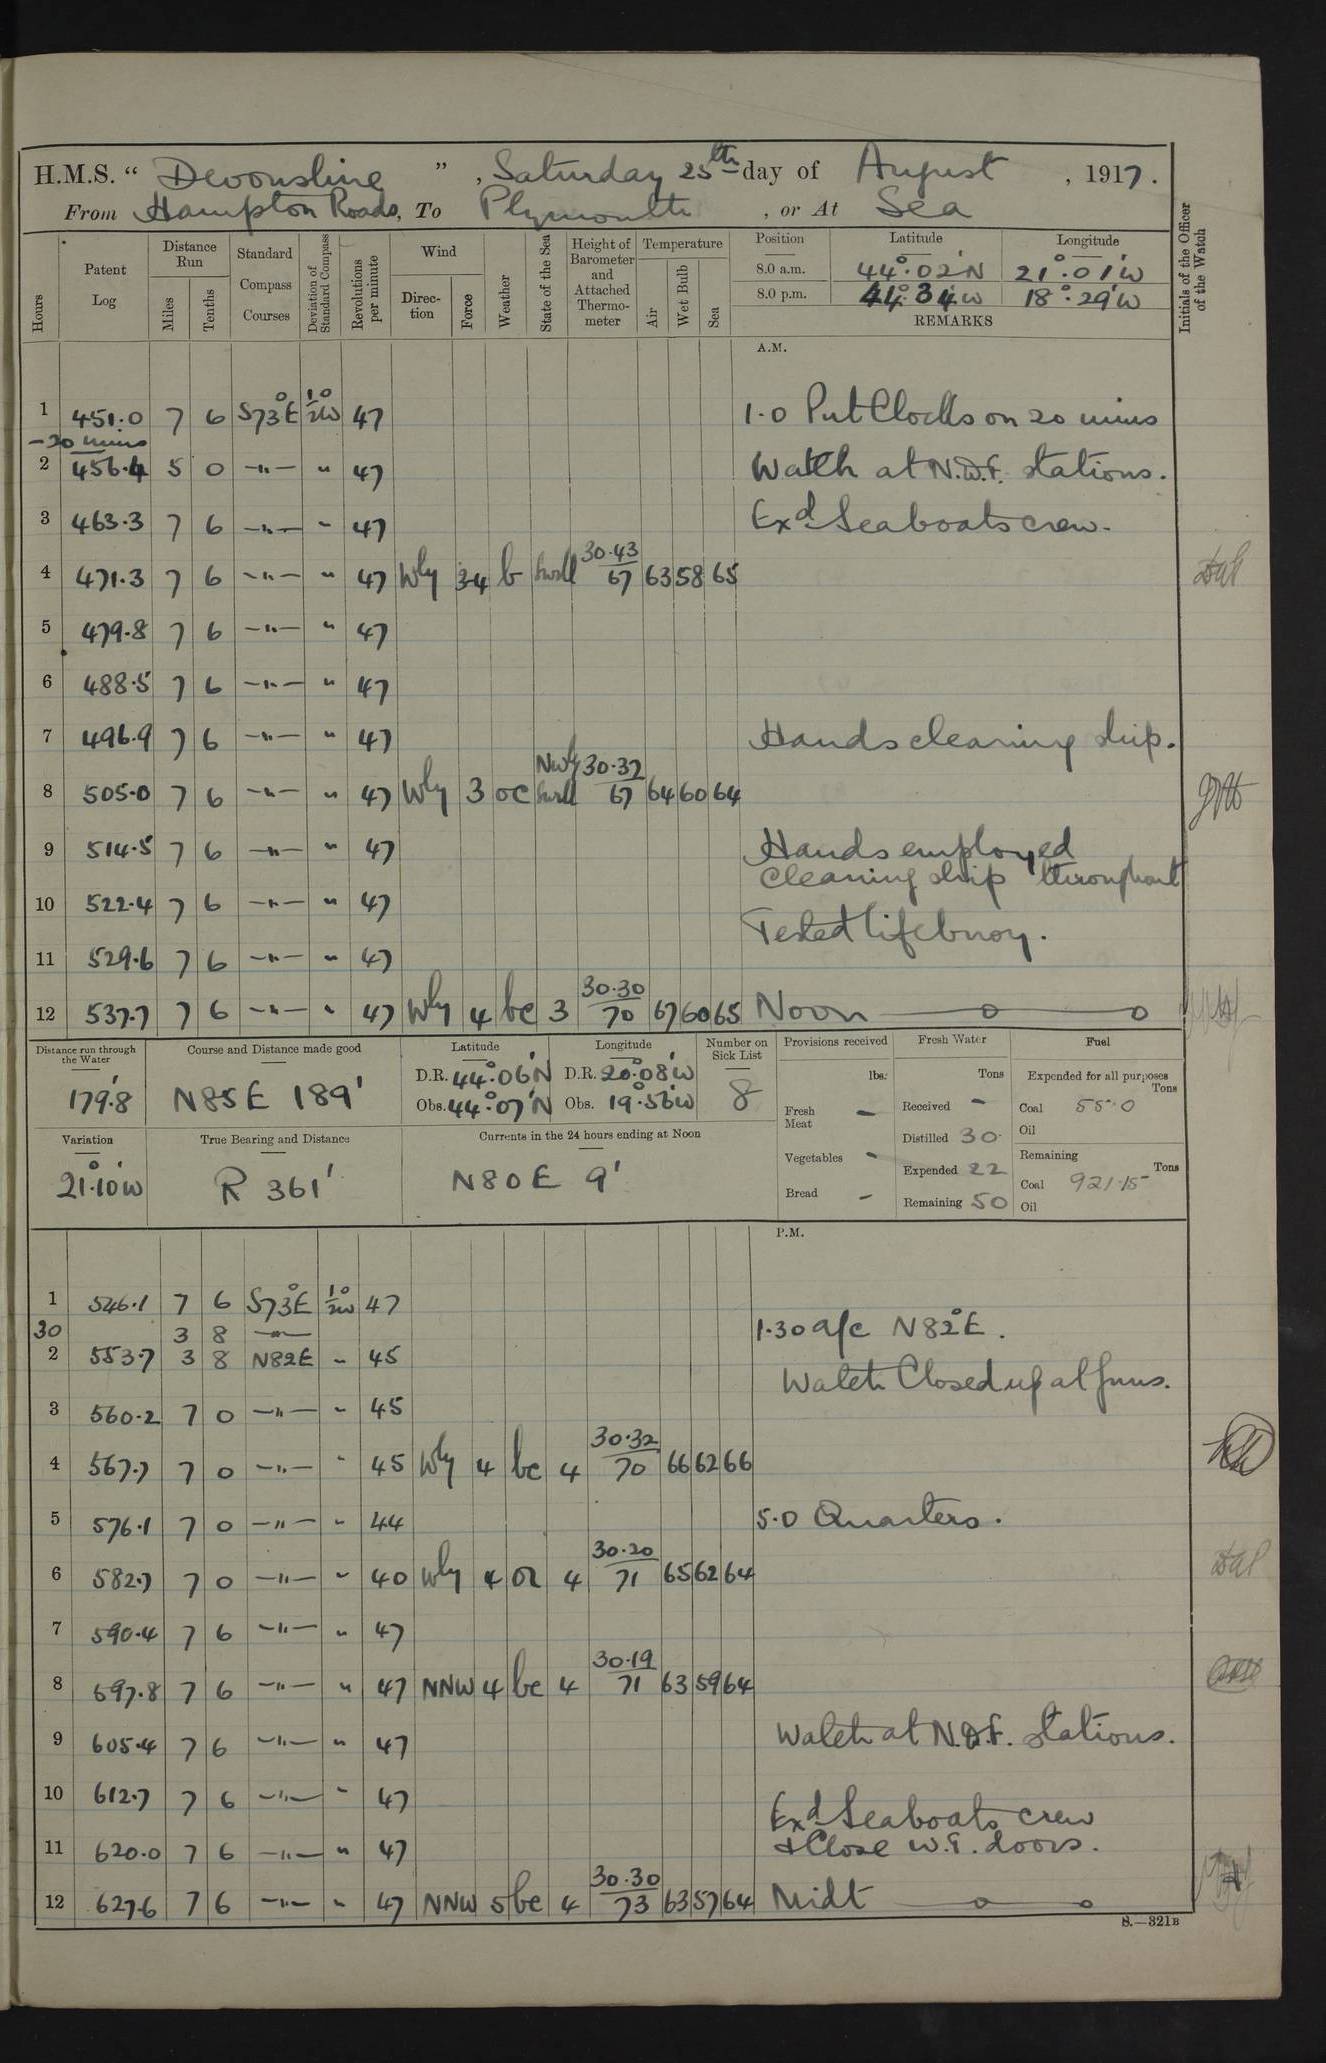 H.M.S. “ Devonshire ” , Saturday 25th day of August , 1917.
From Hampton Roads, To Plymouth , or At Sea
Hours
Patent Log
Distance Run
Miles
Tenths
Standard Compass Courses
Deviation of Standard Compass
Revolutions per minute
Wind
Direction
Force
Weather
State of the Sea
Height of Barometer and Attached Thermometer
Temperature
Air
Wet Bulb
Sea
Position Latitude Longitude
8.0 a.m. 44°.02'N 21°.01'W
8.0 p.m. 44°.34'W 18°.29'W
REMARKS
Initials of the Officer of the Watch
A.M.
1 451.0 7 6 S73°E 1/2°W 47 1.0 Put Clocks on 20 mins
-20 mins
2 456.4 5 0 —"— " 47 Watch at N.D.F. stations.
3 463.3 7 6 —"— " 47 Exd Seaboats crew.
4 471.3 7 6 —"— " 47 Wly 3-4 b Swell 30.43 67 63 58 65
5 479.8 7 6 —"— " 47
6 488.5 7 6 —"— " 47
7 496.9 7 6 —"— " 47 Hands cleaning ship.
8 505.0 7 6 —"— " 47 Wly 3 oc Nwly Swell 30.37 67 64 60 64
9 514.5 7 6 —"— " 47 Hands employed
cleaning ship throughout
10 522.4 7 6 —"— " 47
Tested lifebuoy.
11 529.6 7 6 —"— " 47
12 537.7 7 6 —"— " 47 Wly 4 bc 3 30.30 70 67 60 65 Noon
Distance run through the Water
179'.8
Course and Distance made good
N85E 189'
Latitude
D.R. 44°.06'N
Obs. 44°.07'N
Longitude
D.R. 20°.08'W
Obs. 19°.56'W
Number on Sick List
8
Provisions received
lbs.
Fresh Meat —
Vegetables -
Bread —
Fresh Water
Tons
Received —
Distilled 30
Expended 22
Remaining 50
Fuel
Expended for all purposes
Tons
Coal 55.0
Oil
Remaining
Tons
Coal 921.15
Oil
Variation
21°.10'W
True Bearing and Distance
R 361'
Currents in the 24 hours ending at Noon
N80E 9'
P.M.
1 546.1 7 6 S73°E 1/2°W 47
30 3 8 —"— 1.30 a/c N82°E.
2 553.7 3 8 N82E " 45
Watch Closed up at guns.
3 560.2 7 0 —"— " 45
4 567.7 7 0 —"— " 45 Wly 4 bc 4 30.32 70 66 62 66
5 576.1 7 0 —"— " 44 5.0 Quarters.
6 582.7 7 0 —"— " 40 Wly 4 or 4 30.20 71 65 62 64
7 590.4 7 6 —"— " 47
8 597.8 7 6 —"— " 47 NNW 4 bc 4 30.19 71 63 59 64
9 605.4 7 6 —"— " 47 Watch at N.D.F. stations.
10 612.7 7 6 —"— " 47
Exd Seaboats crew
11 620.0 7 6 —"— " 47 & Close W.T. doors.
12 627.6 7 6 —"— " 47 NNW 5 bc 4 30.30 73 63 57 64 Midt
S.—321B